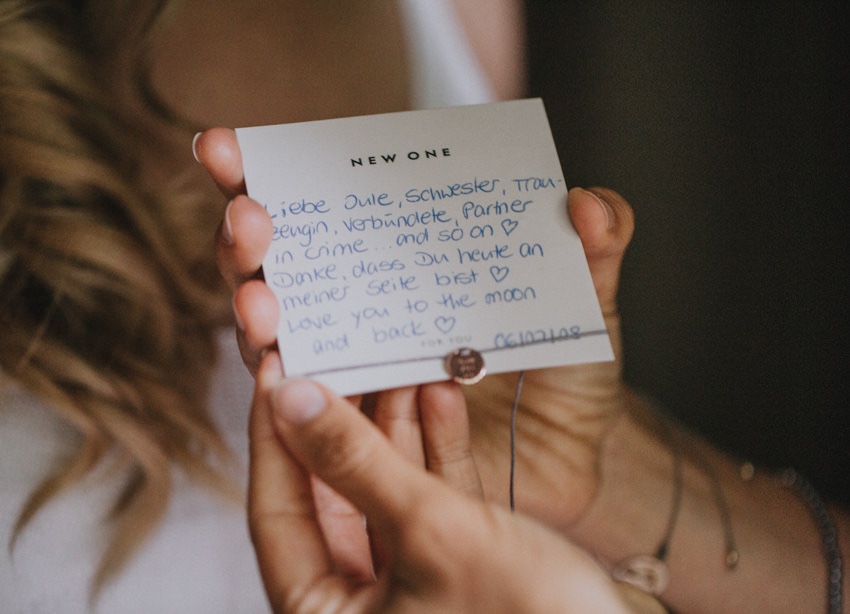 NEW ONE
Liebe Jule, Schwester, Trau-
zeugin, Verbündete, Partner
in crime ... and so on ♡
Danke, dass Du heute an
meiner Seite bist ♡
Love you to the moon
and back ♡
FOR YOU